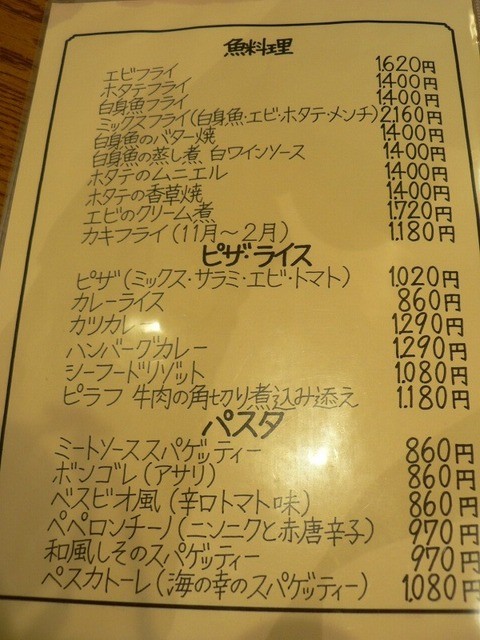 魚料理
エビフライ 1.620円
ホタテフライ 1.400円
白身魚フライ 1.400円
ミックスフライ(白身魚・エビ・ホタテ・メンチ) 2.160円
白身魚のバター焼 1.400円
白身魚の蒸し煮、白ワインソース 1.400円
ホタテのムニエル 1.400円
ホタテの香草焼 1.400円
エビのクリーム煮 1.720円
カキフライ(11月〜2月) 1.180円
ピザ・ライス
ピザ(ミックス・サラミ・エビ・トマト) 1.020円
カレーライス 860円
カツカレー 1.290円
ハンバーグカレー 1.290円
シーフードリゾット 1.080円
ピラフ 牛肉の角切り煮込み添え 1.180円
パスタ
ミートソーススパゲッティー 860円
ボンゴレ(アサリ) 860円
ベスビオ風(辛口トマト味) 860円
ペペロンチーノ(ニンニクと赤唐辛子) 970円
和風しそのスパゲッティー 970円
ペスカトーレ(海の幸のスパゲッティー) 1.080円